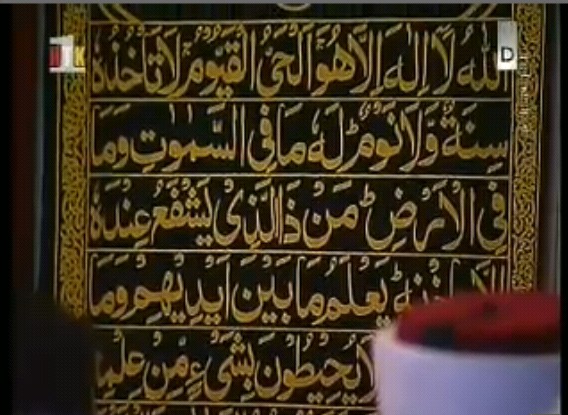 اللهُ لَا اِلٰهَ اِلَّا هُوَ اَلْحَيُّ الْقَيُّوْمُ لَا تَأْخُذُهٗ
سِنَةٌ وَّلَا نَوْمٌ ؕ لَهٗ مَا فِى السَّمٰوٰتِ وَمَا
فِى الْاَرْضِ ؕ مَنْ ذَا الَّذِىْ يَشْفَعُ عِنْدَهٗ
يَعْلَمُ مَا بَيْنَ اَيْدِيْهِمْ وَمَا
يُحِيْطُوْنَ بِشَىْءٍ مِّنْ
D